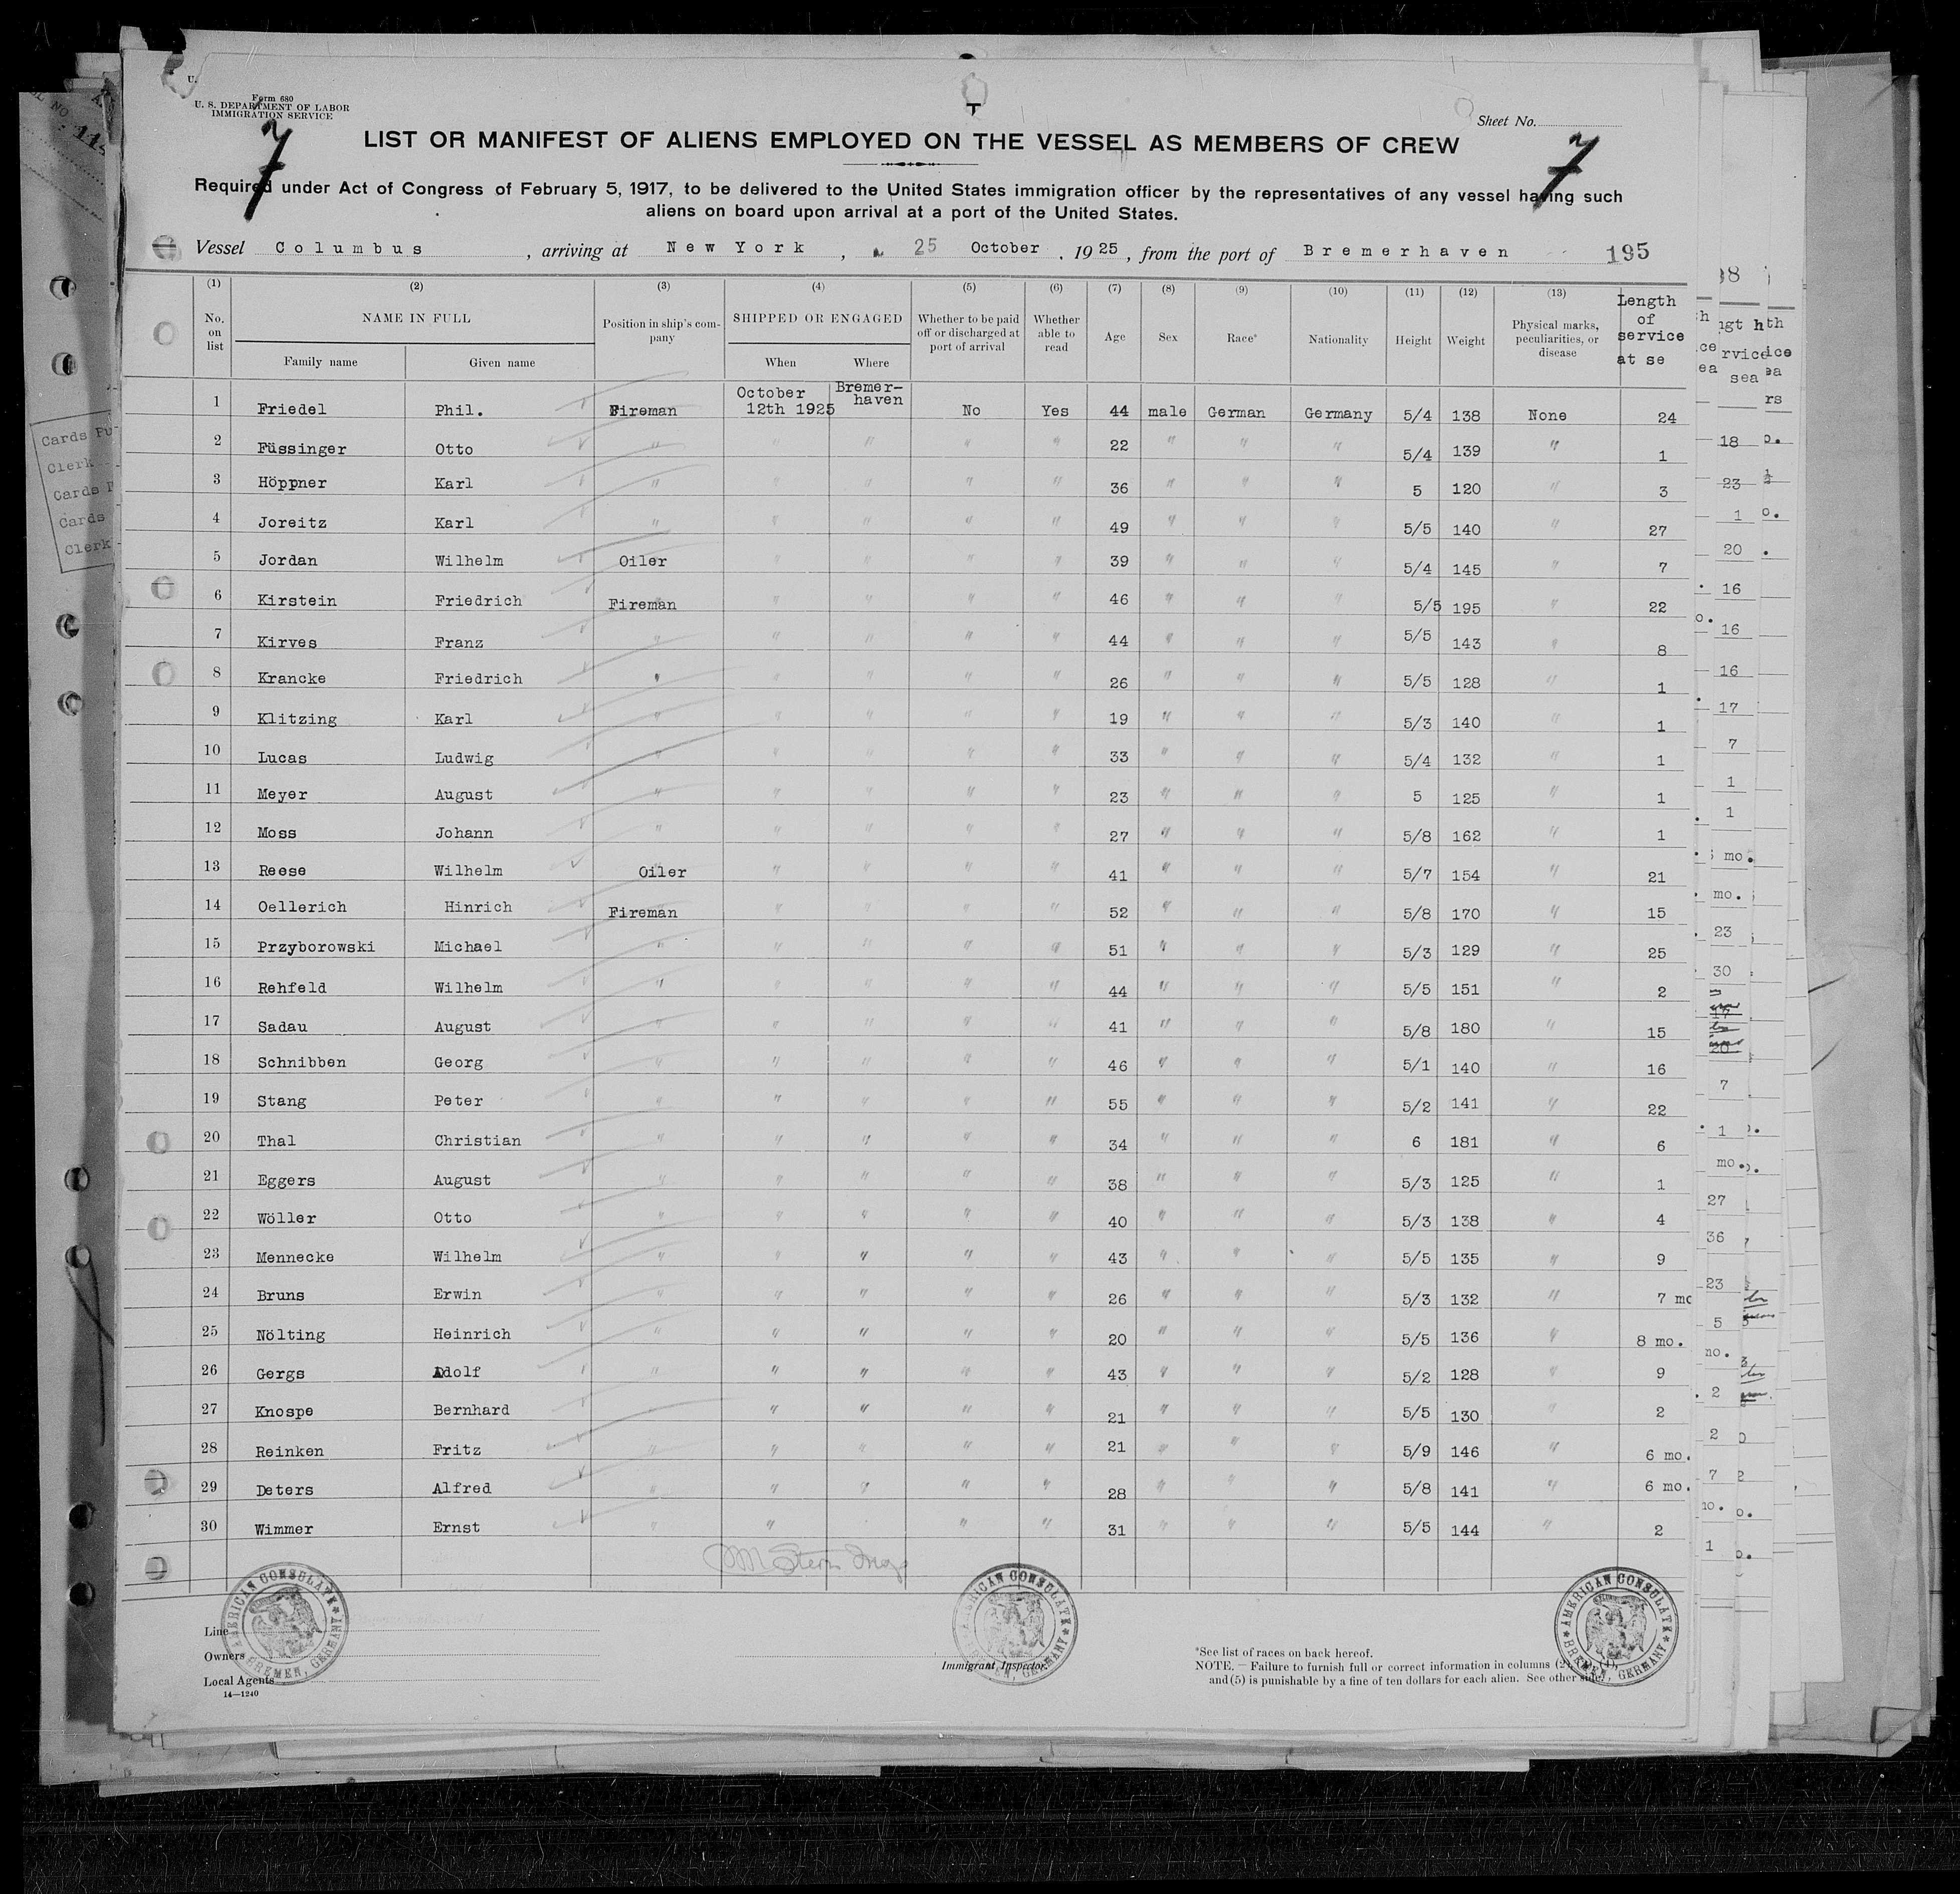 Form 680
U. S. DEPARTMENT OF LABOR
IMMIGRATION SERVICE
Sheet No.
7
7
LIST OR MANIFEST OF ALIENS EMPLOYED ON THE VESSEL AS MEMBERS OF CREW
Required under Act of Congress of February 5, 1917, to be delivered to the United States immigration officer by the representatives of any vessel having such
aliens on board upon arrival at a port of the United States.
Vessel Columbus , arriving at New York , 25 October , 1925 , from the port of Bremerhaven 195
(1) (2) (3) (4) (5) (6) (7) (8) (9) (10) (11) (12) (13)
No. on list NAME IN FULL Family name Given name Position in ship's company SHIPPED OR ENGAGED When Where Whether to be paid off or discharged at port of arrival Whether able to read Age Sex Race* Nationality Height Weight Physical marks, peculiarities, or disease Length of service at se
1 Friedel Phil. Fireman October 12th 1925 Bremer-haven No Yes 44 male German Germany 5/4 138 None 24
2 Füssinger Otto " " " " " 22 " " " 5/4 139 " 1
3 Höppner Karl " " " " " 36 " " " 5 120 " 3
4 Joreitz Karl " " " " " 49 " " " 5/5 140 " 27
5 Jordan Wilhelm Oiler " " " " 39 " " " 5/4 145 " 7
6 Kirstein Friedrich Fireman " " " " 46 " " " 5/5 195 " 22
7 Kirves Franz " " " " " 44 " " " 5/5 143 " 8
8 Krancke Friedrich " " " " " 26 " " " 5/5 128 " 1
9 Klitzing Karl " " " " " 19 " " " 5/3 140 " 1
10 Lucas Ludwig " " " " " 33 " " " 5/4 132 " 1
11 Meyer August " " " " " 23 " " " 5 125 " 1
12 Moss Johann " " " " " 27 " " " 5/8 162 " 1
13 Reese Wilhelm Oiler " " " " 41 " " " 5/7 154 " 21
14 Oellerich Hinrich Fireman " " " " 52 " " " 5/8 170 " 15
15 Przyborowski Michael " " " " " 51 " " " 5/3 129 " 25
16 Rehfeld Wilhelm " " " " " 44 " " " 5/5 151 " 2
17 Sadau August " " " " " 41 " " " 5/8 180 " 15
18 Schnibben Georg " " " " " 46 " " " 5/1 140 " 16
19 Stang Peter " " " " " 55 " " " 5/2 141 " 22
20 Thal Christian " " " " " 34 " " " 6 181 " 6
21 Eggers August " " " " " 38 " " " 5/3 125 " 1
22 Wöller Otto " " " " " 40 " " " 5/3 138 " 4
23 Mennecke Wilhelm " " " " " 43 " " " 5/5 135 " 9
24 Bruns Erwin " " " " " 26 " " " 5/3 132 " 7 mo
25 Nölting Heinrich " " " " " 20 " " " 5/5 136 " 8 mo.
26 Gergs Adolf " " " " " 43 " " " 5/2 128 " 9
27 Knospe Bernhard " " " " 21 " " " 5/5 130 " 2
28 Reinken Fritz " " " " " 21 " " " 5/9 146 " 6 mo.
29 Deters Alfred " " " " " 28 " " " 5/8 141 " 6 mo.
30 Wimmer Ernst " " " " 31 " " " 5/5 144 " 2
AMERICAN CONSULATE BREMEN, GERMANY
AMERICAN CONSULATE BREMEN, GERMANY
AMERICAN CONSULATE BREMEN, GERMANY
Line
Owners
Local Agents
14—1240
Immigrant Inspector.
*See list of races on back hereof.
NOTE.—Failure to furnish full or correct information in columns (2),
and (5) is punishable by a fine of ten dollars for each alien. See other side.
Cards
Clerk
Cards
Cards
Clerk